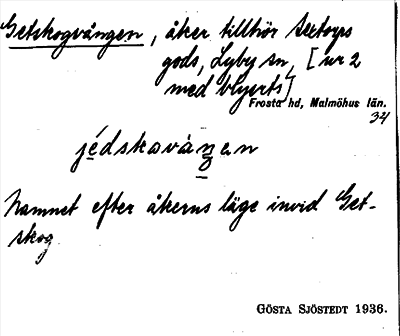 Getskogvången, åker tillhör Sextorps
gods, Lyby sn, [ur 2
med blyerts]
Frosta hd, Malmöhus län.
34
jédskavåŋan
Namnet efter åkerns läge invid Get-
skog
GÖSTA SJÖSTEDT 1936.